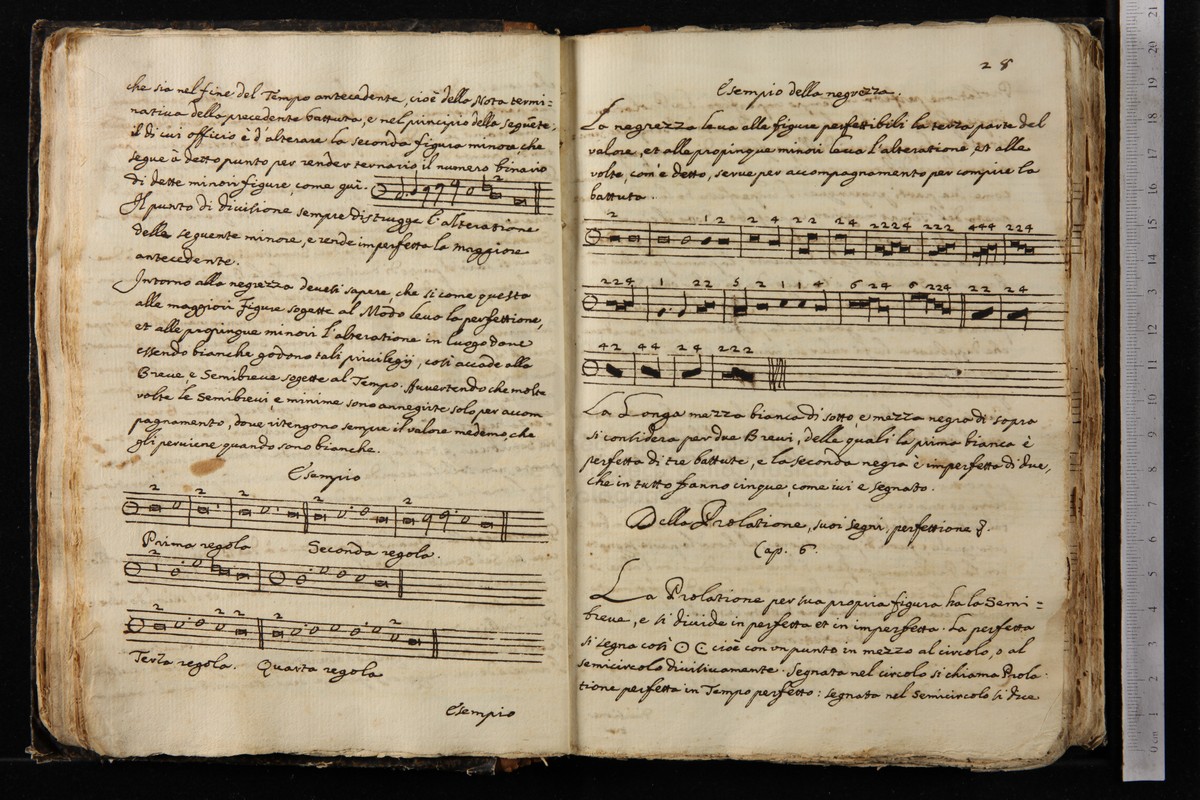 che sia nel fine del Tempo antecedente, cioè della Nota termi=
nativa della precedente battuta, e nel principio della seguēte,
il di cui officio è d'alterare la seconda figura minore, che
segue à detto punto per render ternario il numero binario
di dette minori figure come quì.
2
Il punto di divisione sempre distrugge l'alteratione
della seguente minore, e rende imperfetta la maggiore
antecedente.
Intorno alla negrezza devesi sapere, che si come questa
alle maggiori figure sogette al Modo leva la perfettione,
et alle propinque minori l'alteratione in luogo dove
essendo bianche godono tali privilegij, così accade alla
Breve e Semibreve sogette al Tempo. Avvertendo che molte
volte le Semibrevi, e minime sono annegrite solo per accom
pagnamento, dove ritengono sempre il valore medemo, che
gli perviene quando sono bianche.
Esempio
2 2 2 2 2
Prima regola Seconda regola.
2
2 2 2 2 2
Terza regola. Quarta regola
Esempio
28
Esempio della negrezza.
La negrezza leva alle figure perfettibili la terza parte del
valore, et alle propinque minori leva l'alteratione, et alle
volte, com'è detto, serve per accompagnamento per compire la
battuta.
2 1 2 2 4 2 2 2 4 2 2 2 4 2 2 2 4 4 4 2 2 4
2 2 4 1 2 2 5 2 1 1 4 6 2 4 6 2 2 4 2 2 2 4
4 2 4 4 2 4 2 2 2
La Longa mezza bianca di sotto, e mezza negra di sopra
si considera per due Brevi, delle quali la prima bianca è
perfetta di tre battute, e la seconda negra è imperfetta di due,
che in tutto fanno cinque, come ivi e segnato.
Della Prolatione, suoi segni, perfettione
Cap. 6.
La Prolatione per sua propria figura ha la Semi=
breve, e si divide in perfetta et in imperfetta. La perfetta
si segna così ⊙ ㇰ cioè con un punto in mezzo al circolo, o al
semicircolo divisivamente. Segnata nel circolo si chiama Prola
tione perfetta in Tempo perfetto: segnata nel Semicircolo si dice